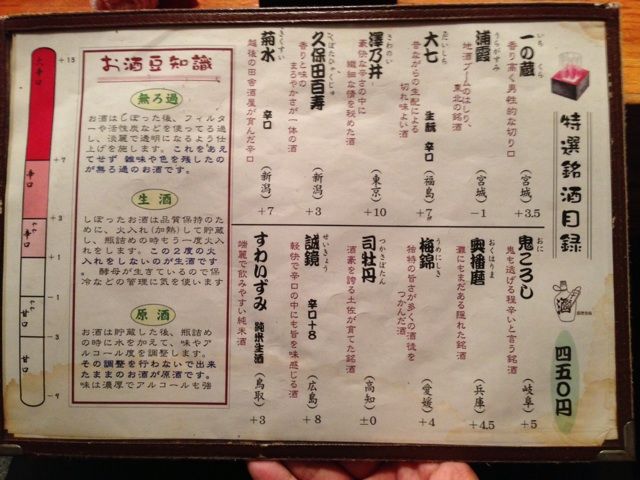 特選銘酒目録
四五〇円
いち くら
一の蔵
香り高く男性的な切り口
(宮城)
+3.5
うらがすみ
浦霞
地酒ブームのはしり、
東北の銘酒
(宮城)
−1
だいしち
大七 生酛 辛口
昔ながらの生酛による
切れ味よい酒
(福島)
+7
さわのい
澤乃井
豪快な辛さの中に
繊細な情を秘めた酒
(東京)
+10
くぼたひゃくじゅ
久保田百寿
香りと味の
まろやかさが一体の酒
(新潟)
+3
きくすい
菊水 辛口
越後の田舎酒屋が育んだ辛口
(新潟)
+7
おに
鬼ころし
鬼も逃げる程辛いと言う銘酒
(岐阜)
+5
おくはりま
奥播磨
灘にもまだある隠れた銘酒
(兵庫)
+4.5
うめにしき
梅錦
独特の旨さが多くの酒徒を
つかんだ酒
(愛媛)
+4
つかさぼたん
司牡丹
酒豪を誇る土佐が育てた銘酒
(高知)
±0
せいきょう
誠鏡 辛口+8
軽快で辛口の中にも旨を味感じる酒
(広島)
+8
すわいずみ 純米生酒
端麗で飲みやすい純米酒
(鳥取)
+3
お酒豆知識
無ろ過
お酒はしぼった後、フィルタ
ーや活性炭などを使ってろ過
し、淡麗で透明になるよう仕
上げを施します。これをあえ
てせず 雑味や色を残したの
が無ろ過のお酒です。
生酒
しぼったお酒は品質保持のた
めに、火入れ(加熱)して貯蔵
し、瓶詰めの時もう一度火入
れをします。この2度の火
入れをしないのが生酒です。
酵母が生きているので保
冷などの管理に気を使います
原酒
お酒は貯蔵した後、瓶詰め
の時に水を加えて、味やア
ルコール度を調整します。
その調整を行わないで出来
たままのお酒が原酒です。
味は濃厚でアルコールも強
+15
大辛口
+7
辛口
+3
やや辛口
+1
−1
やや甘口
−3
甘口